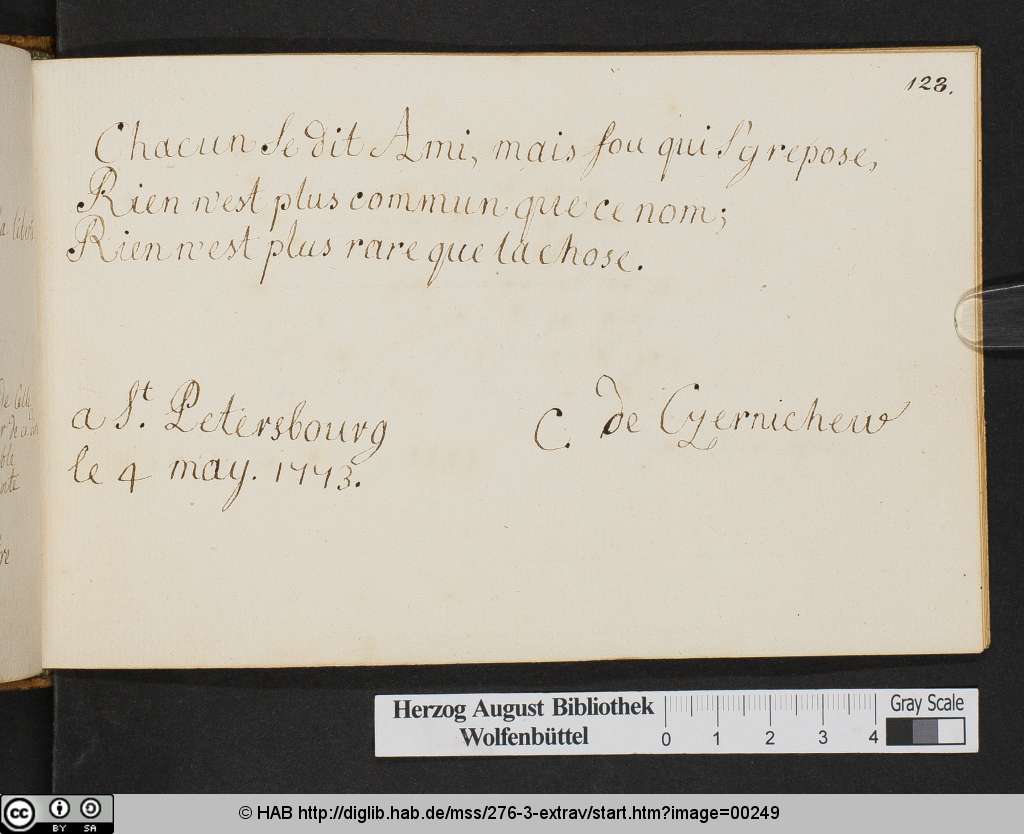 123.
Chacun se dit Ami, mais fou qui s'y repose,
Rien n'est plus commun que ce nom;
Rien n'est plus rare que la chose.
a St. Petersbourg
le 4 may. 1773.
C. de Czernichew
Herzog August Bibliothek
Wolfenbüttel
0 1 2 3 4
Gray Scale
cc BY SA
© HAB http://diglib.hab.de/mss/276-3-extrav/start.htm?image=00249